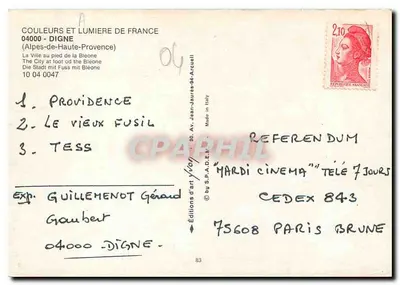 COULEURS ET LUMIERE DE FRANCE
04000 - DIGNE
(Alpes-de-Haute-Provence)
La Ville au pied de la Bléone
The City at foot od the Bleone
Die Stadt mit Fuss mit Bleone
10 04 0047
A
04
2,10
1. PROVIDENCE
2. LE VIEUX FUSIL
3. TESS
Exp. GUILLEMENOT Gérard
Gaubert
04000 - DIGNE -
Editions d'art Yvon, 30, Av. Jean-Jaurès-94-Arcueil
© by S.P.A.D.E.M.
Made in Italy
REFERENDUM
"MARDI CINEMA" "TÉLÉ 7 JOURS
CEDEX 843
75608 PARIS BRUNE
83
CPARAMA.COM